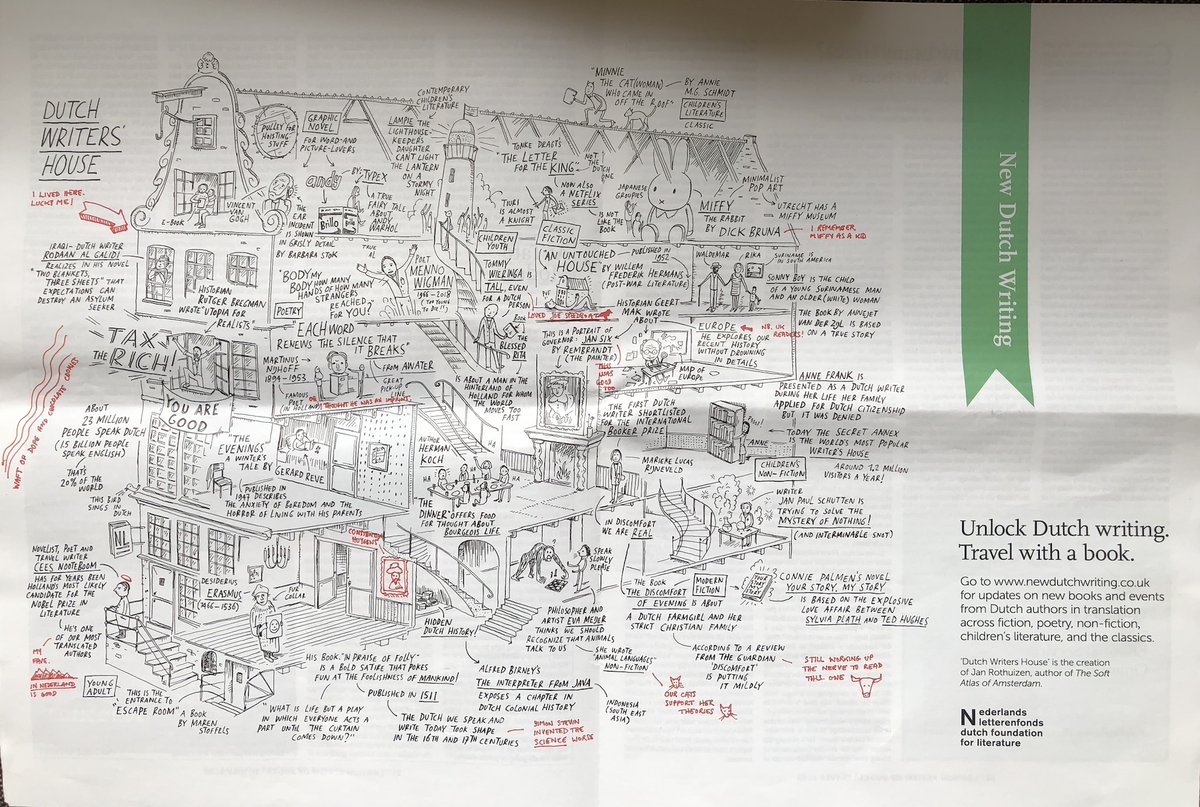 DUTCH
WRITERS'
HOUSE
I LIVED HERE.
LUCKY ME!
PULLEY FOR
HOISTING
STUFF
GRAPHIC
NOVEL
FOR WORD-AND
PICTURE-LOVERS
andy
BY TYPEX
Brillo
A TRUE
FAIRY TALE
ABOUT
ANDY
WARHOL
E-BOOK
VINCENT
VAN
GOGH
THE EAR
INCIDENT
IS SHOWN
IN GRISLY DETAIL
BY BARBARA STOK
CONTEMPORARY
CHILDREN'S
LITERATURE
LAMPIE THE
LIGHTHOUSE-
KEEPERS
DAUGHTER
CAN'T LIGHT
THE LANTERN
ON A
STORMY
NIGHT
"MINNIE
THE CAT(WOMAN)
WHO CAME IN
OFF THE ROOF"
BY ANNIE
M.G. SCHMIDT
CHILDREN'S
LITERATURE
CLASSIC
TONKE DRAGTS
"THE LETTER
FOR THE KING"
NOT THE
DUTCH
ONE
TIURI
IS ALMOST
A KNIGHT
NOW ALSO
A NETFLIX
SERIES
IS NOT
LIKE THE
BOOK
JAPANESE
GROUPIES
MIFFY
THE RABBIT
BY DICK BRUNA
MINIMALIST
POP ART
UTRECHT HAS A
MIFFY MUSEUM
I REMEMBER
MIFFY AS A KID
IRAQI-DUTCH WRITER
RODAAN AL GALIDI
REALIZES IN HIS NOVEL
"TWO BLANKETS,
THREE SHEETS" THAT
EXPECTATIONS CAN
DESTROY AN ASYLUM
SEEKER
HISTORIAN
RUTGER BREGMAN
WROTE "UTOPIA FOR
REALISTS"
TAX
THE RICH!
POETRY
"BODY MY
BODY HOW MANY
HANDS OF HOW MANY
STRANGERS
REACHED
FOR YOU?"
POET
MENNO
WIGMAN
1966-2018
(TOO YOUNG
TO DIE!!)
CHILDREN
YOUTH
TOMMY
WIERINGA
IS
TALL, EVEN
FOR A DUTCH
PERSON
LOVED JOE SPEEDBOAT
BOOK
THE
BLESSED
RITA
IS ABOUT A MAN IN THE
HINTERLAND OF
HOLLAND FOR WHOM
THE WORLD
MOVES TOO
FAST
CLASSIC
FICTION
"AN UNTOUCHED
HOUSE"
PUBLISHED IN
1952
BY WILLEM
FREDERIK HERMANS
(POST-WAR LITERATURE)
WALDEMAR
RIKA
SURINAME IS
IN SOUTH AMERICA
SONNY BOY IS THE CHILD
OF A YOUNG SURINAMESE MAN
AND AN OLDER (WHITE) WOMAN
THE BOOK BY ANNEJET
VAN DER ZIJL IS BASED
ON A TRUE STORY
HISTORIAN GEERT
MAK WROTE
ABOUT
EUROPE
NB. UK
READERS!
HE EXPLORES OUR
RECENT HISTORY
WITHOUT DROWNING
IN DETAILS
MAP OF
EUROPE
"EACH WORD
RENEWS THE SILENCE THAT
IT BREAKS"
FROM AWATER
MARTINUS
NIJHOFF
1894-1953
FAMOUS
POET
(IN HOLLAND)
GREAT
PICK-UP
LINE
THIS IS A PORTRAIT OF
GOVERNOR: JAN SIX
BY REMBRANDT
(THE PAINTER)
THIS
WAS
GOOD
TOO
WAFT OF DOPE AND CHOCOLATE
YOU ARE
GOOD
ABOUT
23 MILLION
PEOPLE SPEAK DUTCH
(1.5 BILLION PEOPLE
SPEAK ENGLISH)
THAT'S
20% OF THE
WORLD
THIS BIRD
SINGS IN
DUTCH
NL
"THE
EVENINGS
A WINTER'S
TALE BY
GERARD REVE
PUBLISHED IN
1947 DESCRIBES
THE ANXIETY OF BOREDOM AND THE
HORROR OF LIVING WITH HIS PARENTS
AUTHOR
HERMAN
KOCH
HA
HA
HA
"THE
DINNER" OFFERS FOOD
FOR THOUGHT ABOUT
BOURGEOIS LIFE
THE FIRST DUTCH
WRITER SHORTLISTED
FOR THE INTERNATIONAL
BOOKER PRIZE
MARIEKE LUCAS
RIJNEVELD
IN DISCOMFORT
WE ARE REAL
ANNE FRANK IS
PRESENTED AS A DUTCH WRITER
DURING HER LIFE HER FAMILY
APPLIED FOR DUTCH CITIZENSHIP
BUT IT WAS DENIED
TODAY THE SECRET ANNEX
IS THE WORLD'S MOST POPULAR
WRITER'S HOUSE
AROUND 1,2 MILLION
VISITORS A YEAR!
ANNE
CHILDREN'S
NON-FICTION
WRITER
JAN PAUL SCHUTTEN IS
TRYING TO SOLVE THE
MYSTERY OF NOTHING!
(AND INTERMINABLE SNOT)
NOVELIST, POET AND
TRAVEL WRITER
CEES NOOTEBOOM
HAS FOR YEARS BEEN
HOLLAND'S MOST LIKELY
CANDIDATE FOR THE
NOBEL PRIZE IN
LITERATURE
HE'S ONE
OF OUR MOST
TRANSLATED
AUTHORS
MY
FAVE.
IN NEDERLAND
IS GOOD
YOUNG
ADULT
THIS IS THE
ENTRANCE TO
"ESCAPE ROOM" A BOOK
BY MAREN
STOFFELS
DESIDERIUS
ERASMUS
(1466-1536)
FUR
COLLAR
CONSTANTIJN
HUYGENS
HIS BOOK "IN PRAISE OF FOLLY"
IS A BOLD SATIRE THAT POKES
FUN AT THE FOOLISHNESS OF MANKIND!
PUBLISHED IN 1511
"WHAT IS LIFE BUT A PLAY
IN WHICH EVERYONE ACTS A
PART UNTIL THE CURTAIN
COMES DOWN?"
HIDDEN
DUTCH HISTORY
ALFRED BIRNEY'S
THE INTERPRETER FROM JAVA
EXPOSES A CHAPTER IN
DUTCH COLONIAL HISTORY
INDONESIA
(SOUTH EAST
ASIA)
THE DUTCH WE SPEAK AND
WRITE TODAY TOOK SHAPE
IN THE 16TH AND 17TH CENTURIES
SIMON STEVIN
INVENTED THE
SCIENCE WORDS
SPEAK
SLOWLY
PLEASE
PHILOSOPHER AND
ARTIST EVA MEIJER
THINKS WE SHOULD
RECOGNIZE THAT ANIMALS
TALK TO US
SHE WROTE
"ANIMAL LANGUAGES"
NON-FICTION
OUR CATS
SUPPORT HER
THEORIES
THE BOOK
THE DISCOMFORT
OF EVENING IS ABOUT
A DUTCH FARMGIRL AND HER
STRICT CHRISTIAN FAMILY
ACCORDING TO A REVIEW
FROM THE GUARDIAN
'DISCOMFORT'
IS PUTTING
IT MILDLY
STILL WORKING UP
THE NERVE TO READ
THIS ONE
MODERN
FICTION
YOUR
STORY
MY
STORY
CONNIE PALMEN'S NOVEL
YOUR STORY, MY STORY
IS BASED ON THE EXPLOSIVE
LOVE AFFAIR BETWEEN
SYLVIA PLATH AND TED HUGHES
New Dutch Writing
Unlock Dutch writing.
Travel with a book.
Go to www.newdutchwriting.co.uk
for updates on new books and events
from Dutch authors in translation
across fiction, poetry, non-fiction,
children's literature, and the classics.
'Dutch Writers House' is the creation
of Jan Rothuizen, author of The Soft
Atlas of Amsterdam.
Nederlands
letterenfonds
dutch foundation
for literature